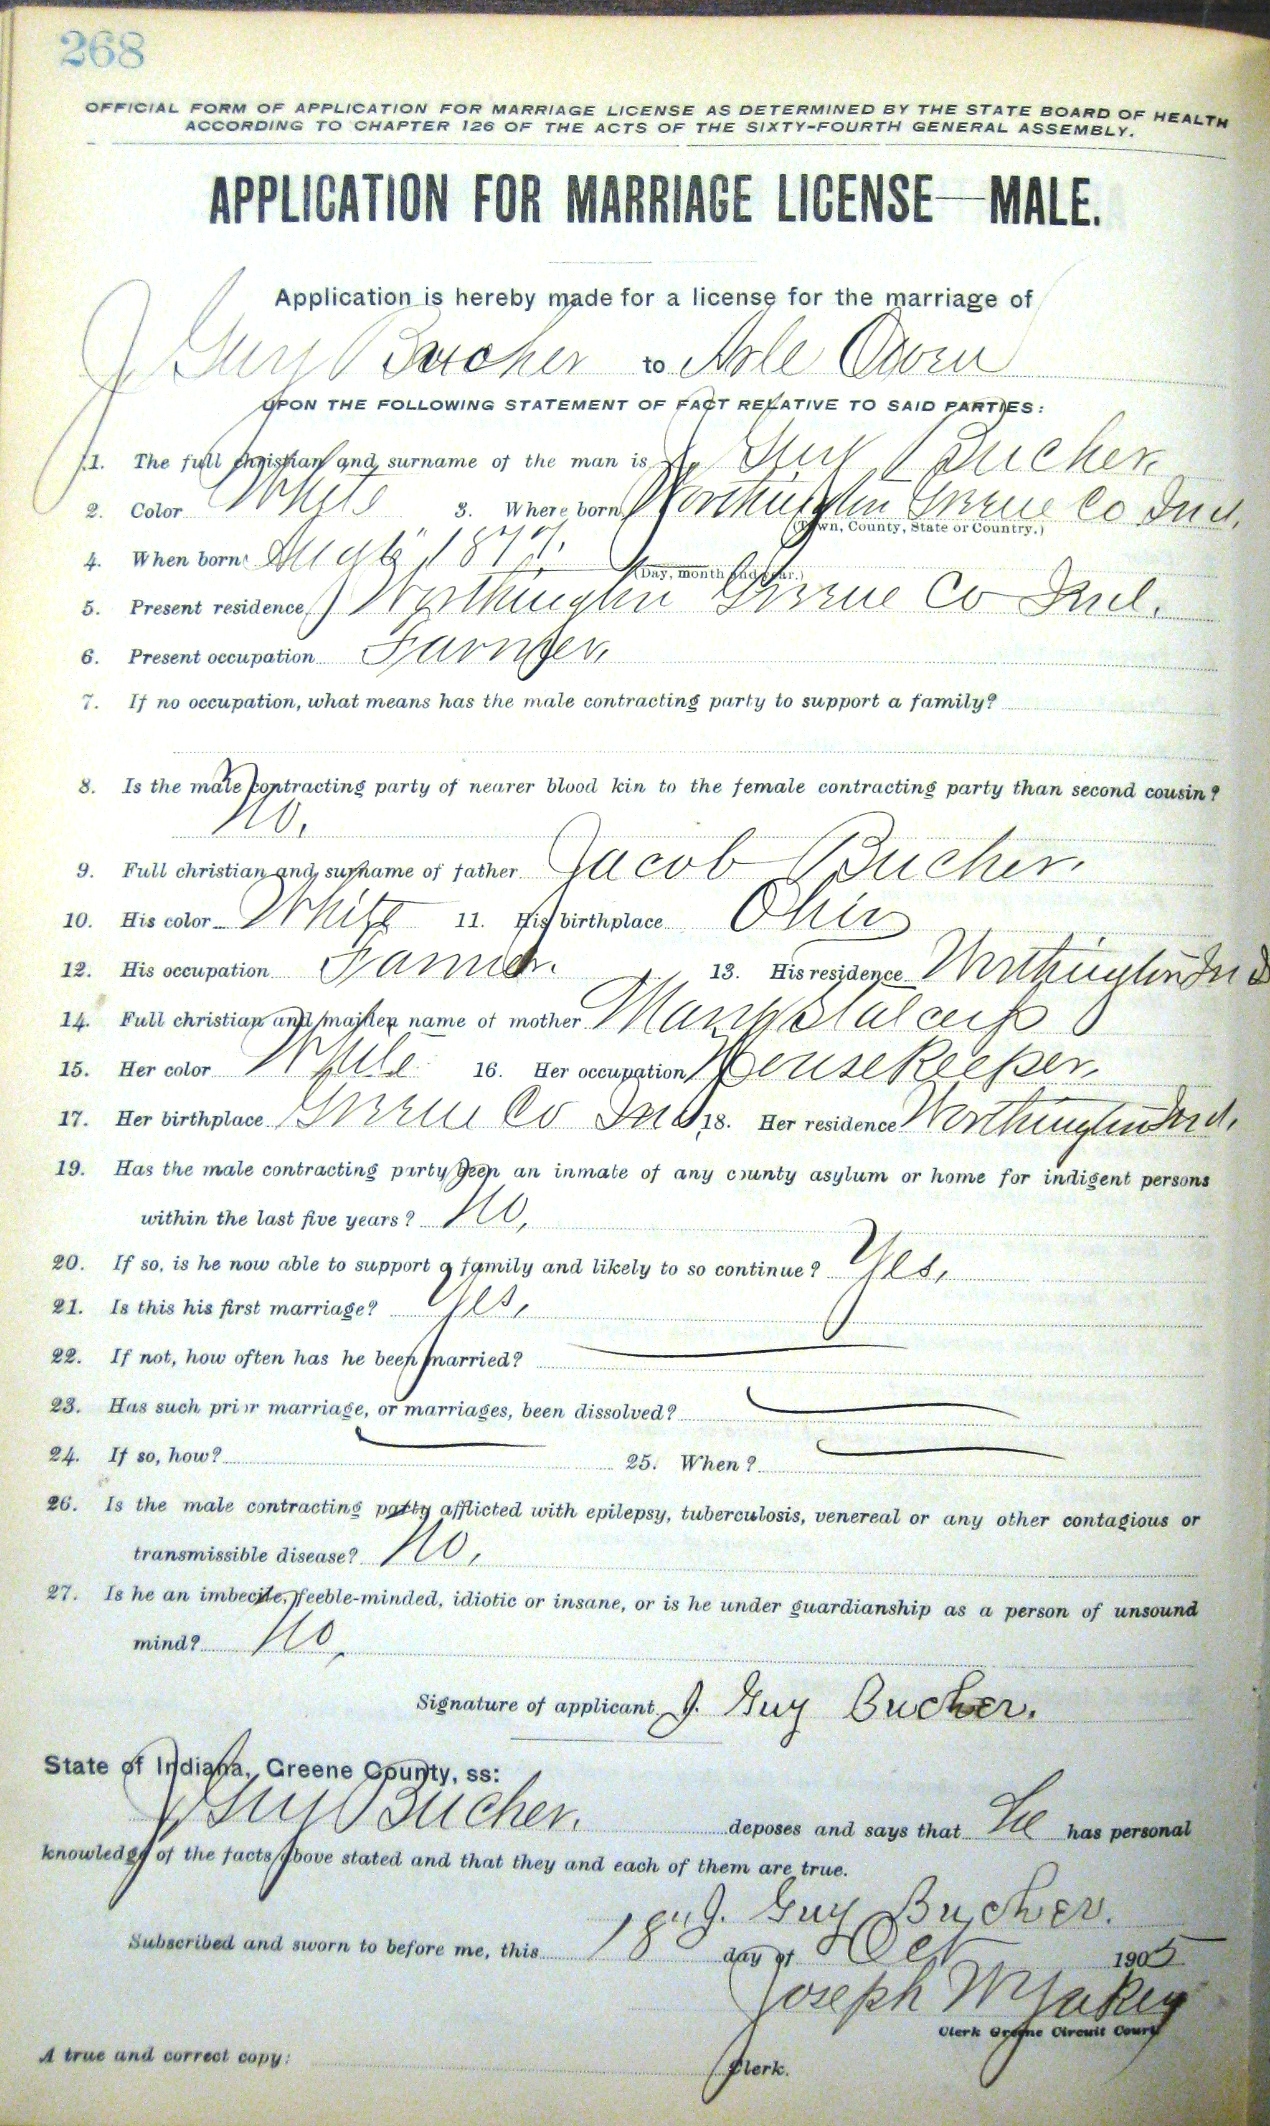 268
OFFICIAL FORM OF APPLICATION FOR MARRIAGE LICENSE AS DETERMINED BY THE STATE BOARD OF HEALTH
ACCORDING TO CHAPTER 126 OF THE ACTS OF THE SIXTY-FOURTH GENERAL ASSEMBLY.
APPLICATION FOR MARRIAGE LICENSE—MALE.
Application is hereby made for a license for the marriage of
J Guy Bucher to Arle Owen
UPON THE FOLLOWING STATEMENT OF FACT RELATIVE TO SAID PARTIES:
1. The full christian and surname of the man is J. Guy Bucher.
2. Color White 3. Where born Worthington Greene Co Ind.
(Town, County, State or Country.)
4. When born Aug 6" 1877.
(Day, month and year.)
5. Present residence Worthington Greene Co Ind.
6. Present occupation Farmer.
7. If no occupation, what means has the male contracting party to support a family?
8. Is the male contracting party of nearer blood kin to the female contracting party than second cousin?
No.
9. Full christian and surname of father Jacob Bucher.
10. His color White 11. His birthplace Ohio
12. His occupation Farmer. 13. His residence Worthington Ind
14. Full christian and maiden name of mother Mary Stalcup
15. Her color White 16. Her occupation Housekeeper.
17. Her birthplace Greene Co Ind. 18. Her residence Worthington Ind.
19. Has the male contracting party been an inmate of any county asylum or home for indigent persons
within the last five years? No.
20. If so, is he now able to support a family and likely to so continue? Yes.
21. Is this his first marriage? Yes.
22. If not, how often has he been married?
23. Has such prior marriage, or marriages, been dissolved?
24. If so, how? 25. When?
26. Is the male contracting party afflicted with epilepsy, tuberculosis, venereal or any other contagious or
transmissible disease? No.
27. Is he an imbecile, feeble-minded, idiotic or insane, or is he under guardianship as a person of unsound
mind? No.
Signature of applicant J. Guy Bucher.
State of Indiana, Greene County, ss:
J Guy Bucher. deposes and says that he has personal
knowledge of the facts above stated and that they and each of them are true.
J. Guy Bucher.
Subscribed and sworn to before me, this 18" day of Oct 1905
Joseph W Yakey
Clerk Greene Circuit Court
A true and correct copy: Clerk.